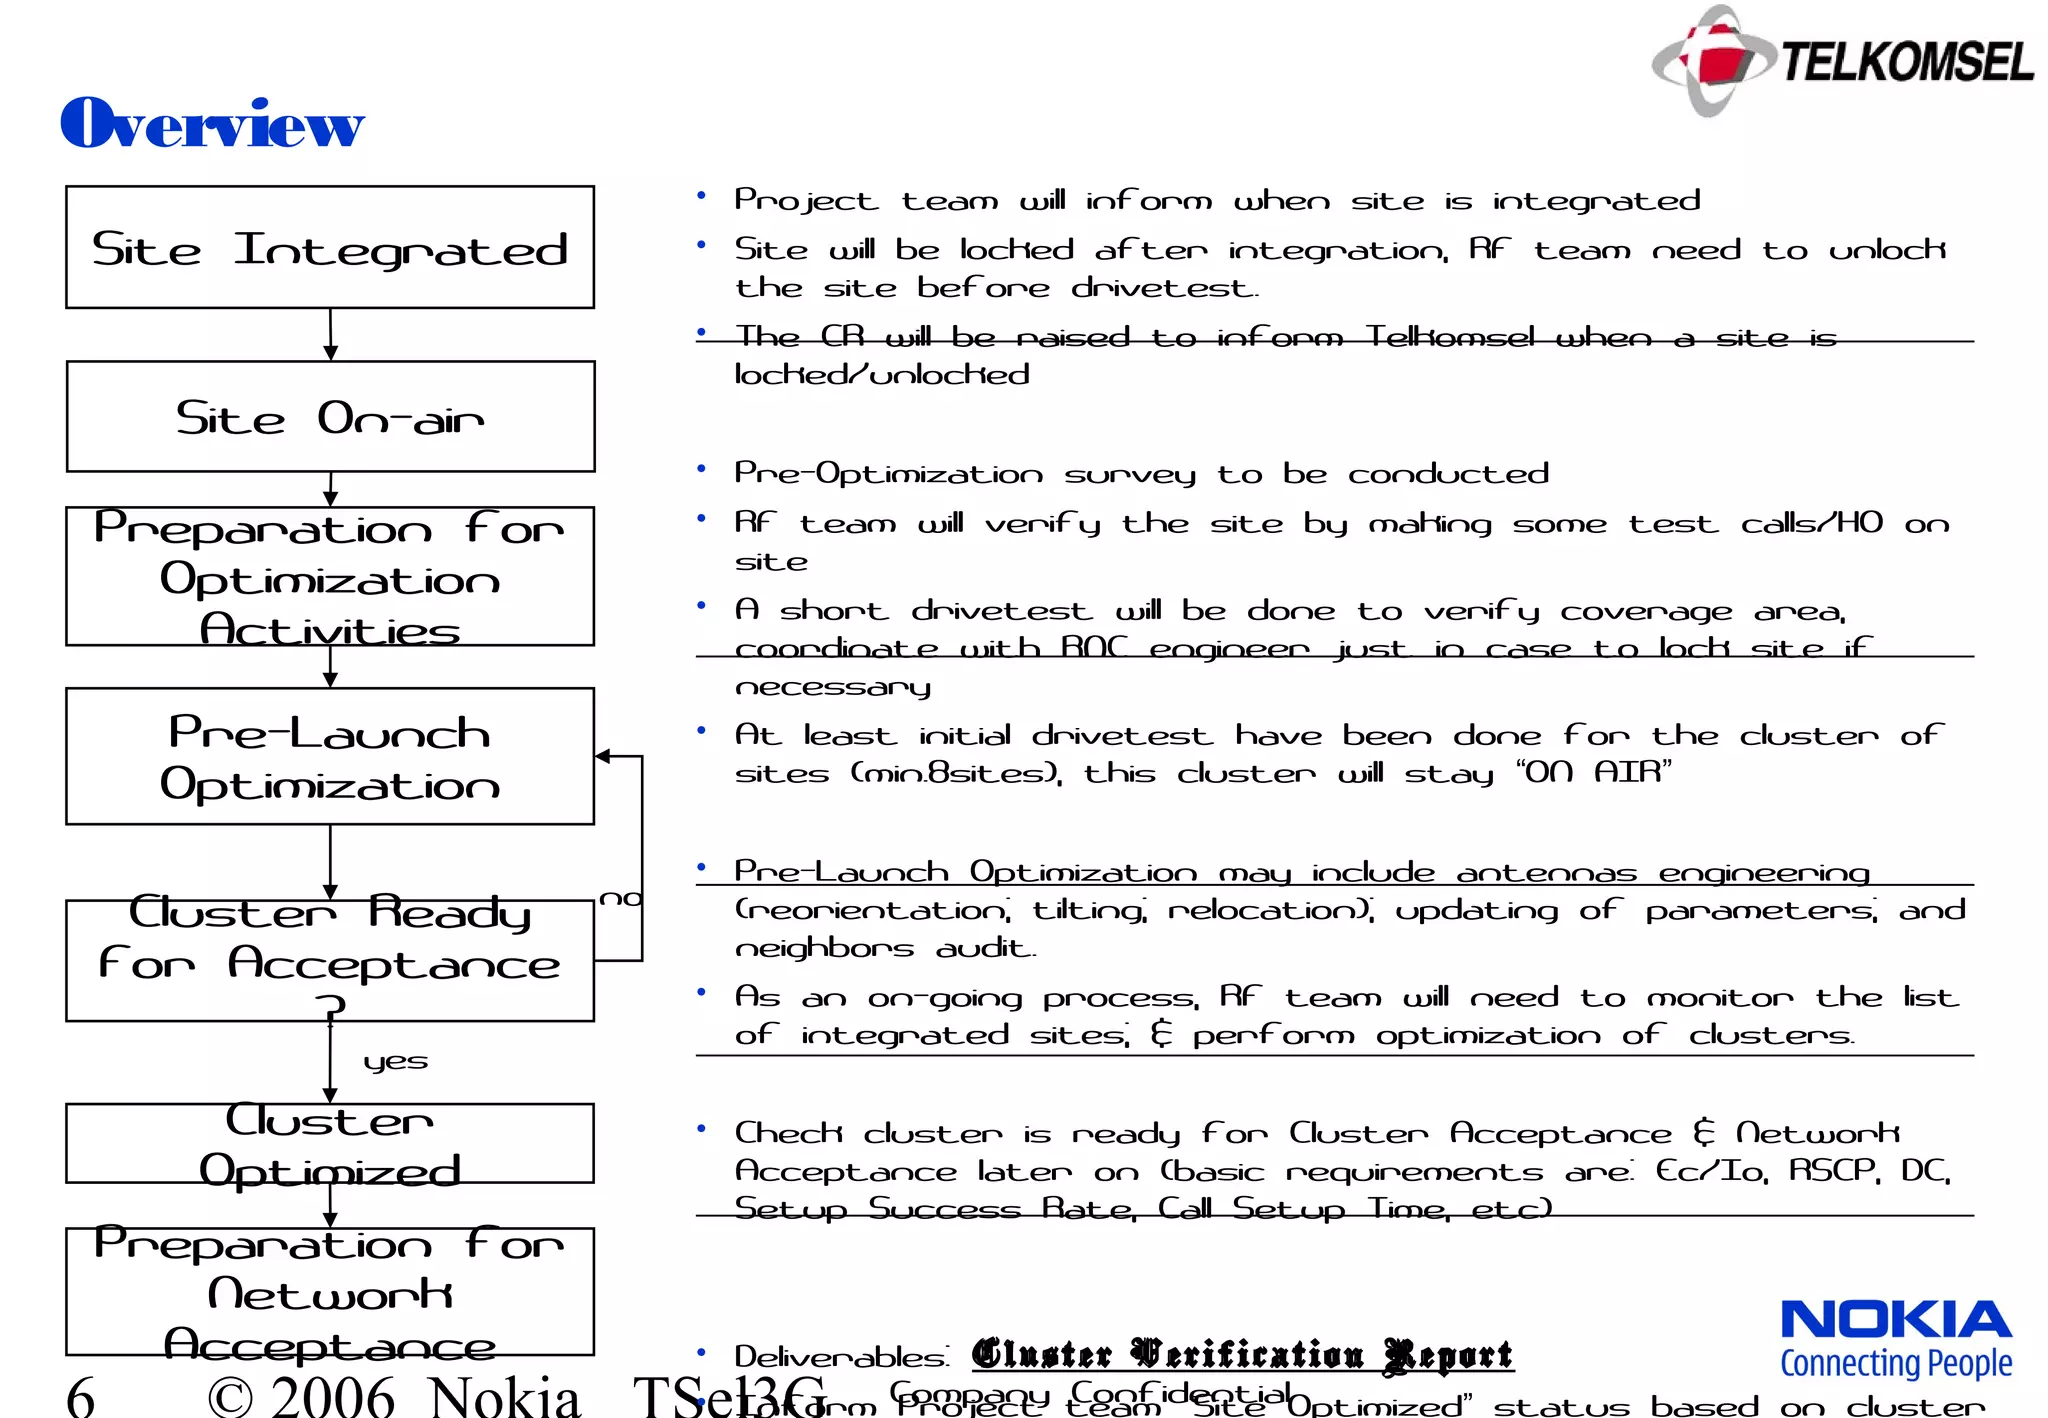 TELKOMSEL
Overview
Site Integrated
Site On-air
Preparation for
Optimization
Activities
Pre-Launch
Optimization
no
Cluster Ready
for Acceptance
?
yes
Cluster
Optimized
Preparation for
Network
Acceptance
• Project team will inform when site is integrated
• Site will be locked after integration, RF team need to unlock
the site before drivetest.
• The CR will be raised to inform Telkomsel when a site is
locked/unlocked
• Pre-Optimization survey to be conducted
• RF team will verify the site by making some test calls/HO on
site
• A short drivetest will be done to verify coverage area,
coordinate with RNC engineer just in case to lock site if
necessary
• At least initial drivetest have been done for the cluster of
sites (min.8sites), this cluster will stay “ON AIR”
• Pre-Launch Optimization may include antennas engineering
(reorientation; tilting; relocation); updating of parameters; and
neighbors audit.
• As an on-going process, RF team will need to monitor the list
of integrated sites; & perform optimization of clusters.
• Check cluster is ready for Cluster Acceptance & Network
Acceptance later on (basic requirements are: Ec/Io, RSCP, DC,
Setup Success Rate, Call Setup Time, etc)
• Deliverables: Cluster Verification Report
• Inform Project team “Site Optimized” status based on cluster
NOKIA
Connecting People
6 © 2006 Nokia TSel3G
Company Confidential